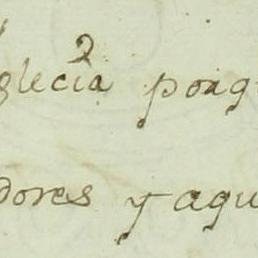 glecia poag
dores y agu